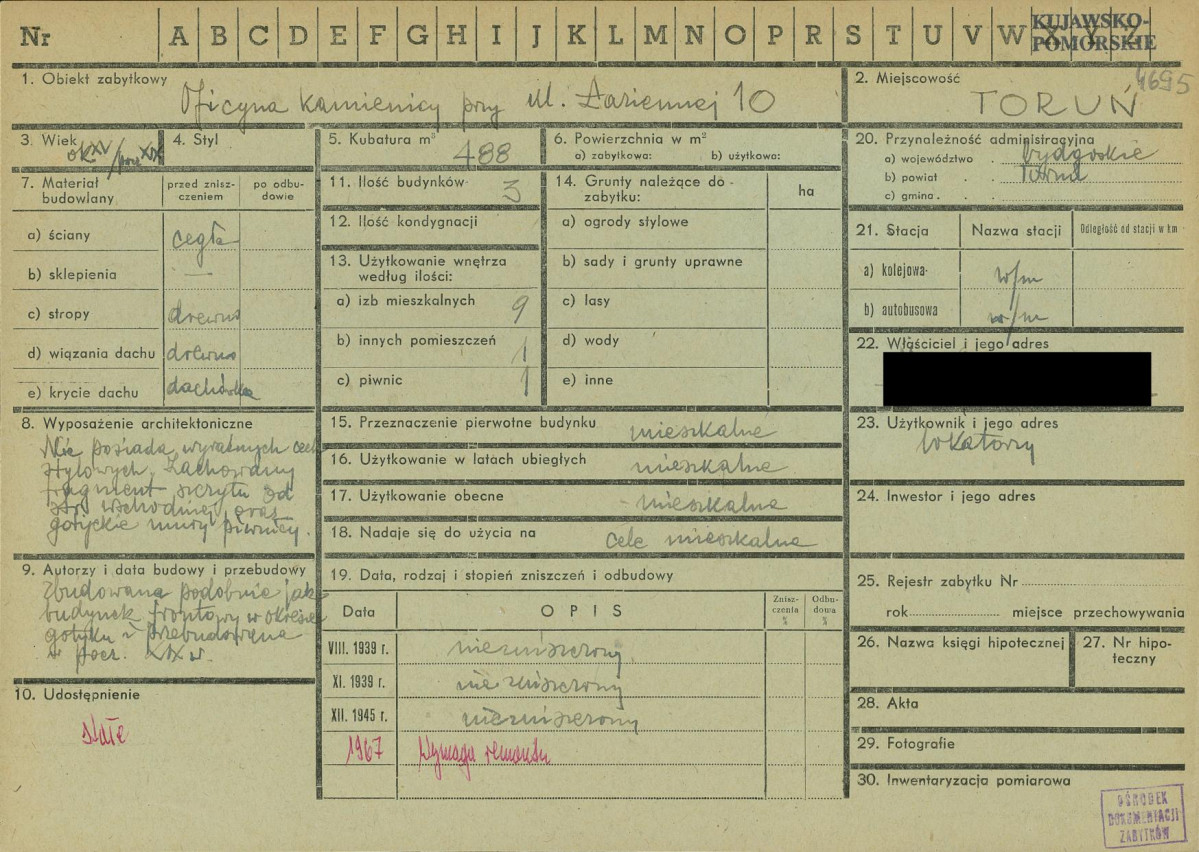 Nr A B C D E F G H I J K L M N O P R S T U V W X Y Z
KUJAWSKO-
POMORSKIE
4695
1. Obiekt zabytkowy
Oficyna kamienicy przy ul. Łaziennej 10
2. Miejscowość
TORUŃ
3. Wiek
ok XV / pocz XIX
4. Styl
5. Kubatura m³
488
6. Powierzchnia w m²
a) zabytkowa: b) użytkowa:
7. Materiał budowlany
przed znisz-
czeniem
po odbu-
dowie
a) ściany cegła
b) sklepienia —
c) stropy drewno
d) wiązania dachu drewno
e) krycie dachu dachówka
8. Wyposażenie architektoniczne
Nie posiada wyraźnych cech
stylowych. Zachowany
fragment szczytu od
str. wschodniej oraz
gotyckie mury piwnicy.
9. Autorzy i data budowy i przebudowy
Zbudowana podobnie jak
budynek frontowy w okresie
gotyku i przebudowana
w pocz. XIX w.
10. Udostępnienie
stałe
11. Ilość budynków 3
12. Ilość kondygnacji
13. Użytkowanie wnętrza
według ilości:
a) izb mieszkalnych 9
b) innych pomieszczeń 1
c) piwnic 1
14. Grunty należące do
zabytku:
ha
a) ogrody stylowe
b) sady i grunty uprawne
c) lasy
d) wody
e) inne
15. Przeznaczenie pierwotne budynku mieszkalne
16. Użytkowanie w latach ubiegłych mieszkalne
17. Użytkowanie obecne - mieszkalne
18. Nadaje się do użycia na cele mieszkalne
19. Data, rodzaj i stopień zniszczeń i odbudowy
Data
OPIS
Znisz-
czenia
%
Odbu-
dowa
%
VIII. 1939 r. niezniszczony
XI. 1939 r. niezniszczony
XII. 1945 r. niezniszczony
1967 Wymaga remontu
20. Przynależność administracyjna
a) województwo bydgoskie
b) powiat Toruń
c) gmina
21. Stacja
Nazwa stacji
Odległość od stacji w km
a) kolejowa w/m
b) autobusowa w/m
22. Właściciel i jego adres
23. Użytkownik i jego adres
lokatorzy
24. Inwestor i jego adres
25. Rejestr zabytku Nr
rok miejsce przechowywania
26. Nazwa księgi hipotecznej
27. Nr hipo-
teczny
28. Akta
29. Fotografie
30. Inwentaryzacja pomiarowa
OŚRODEK
DOKUMENTACJI
ZABYTKÓW